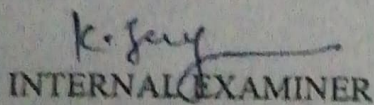 INTERNAL EXAMINER